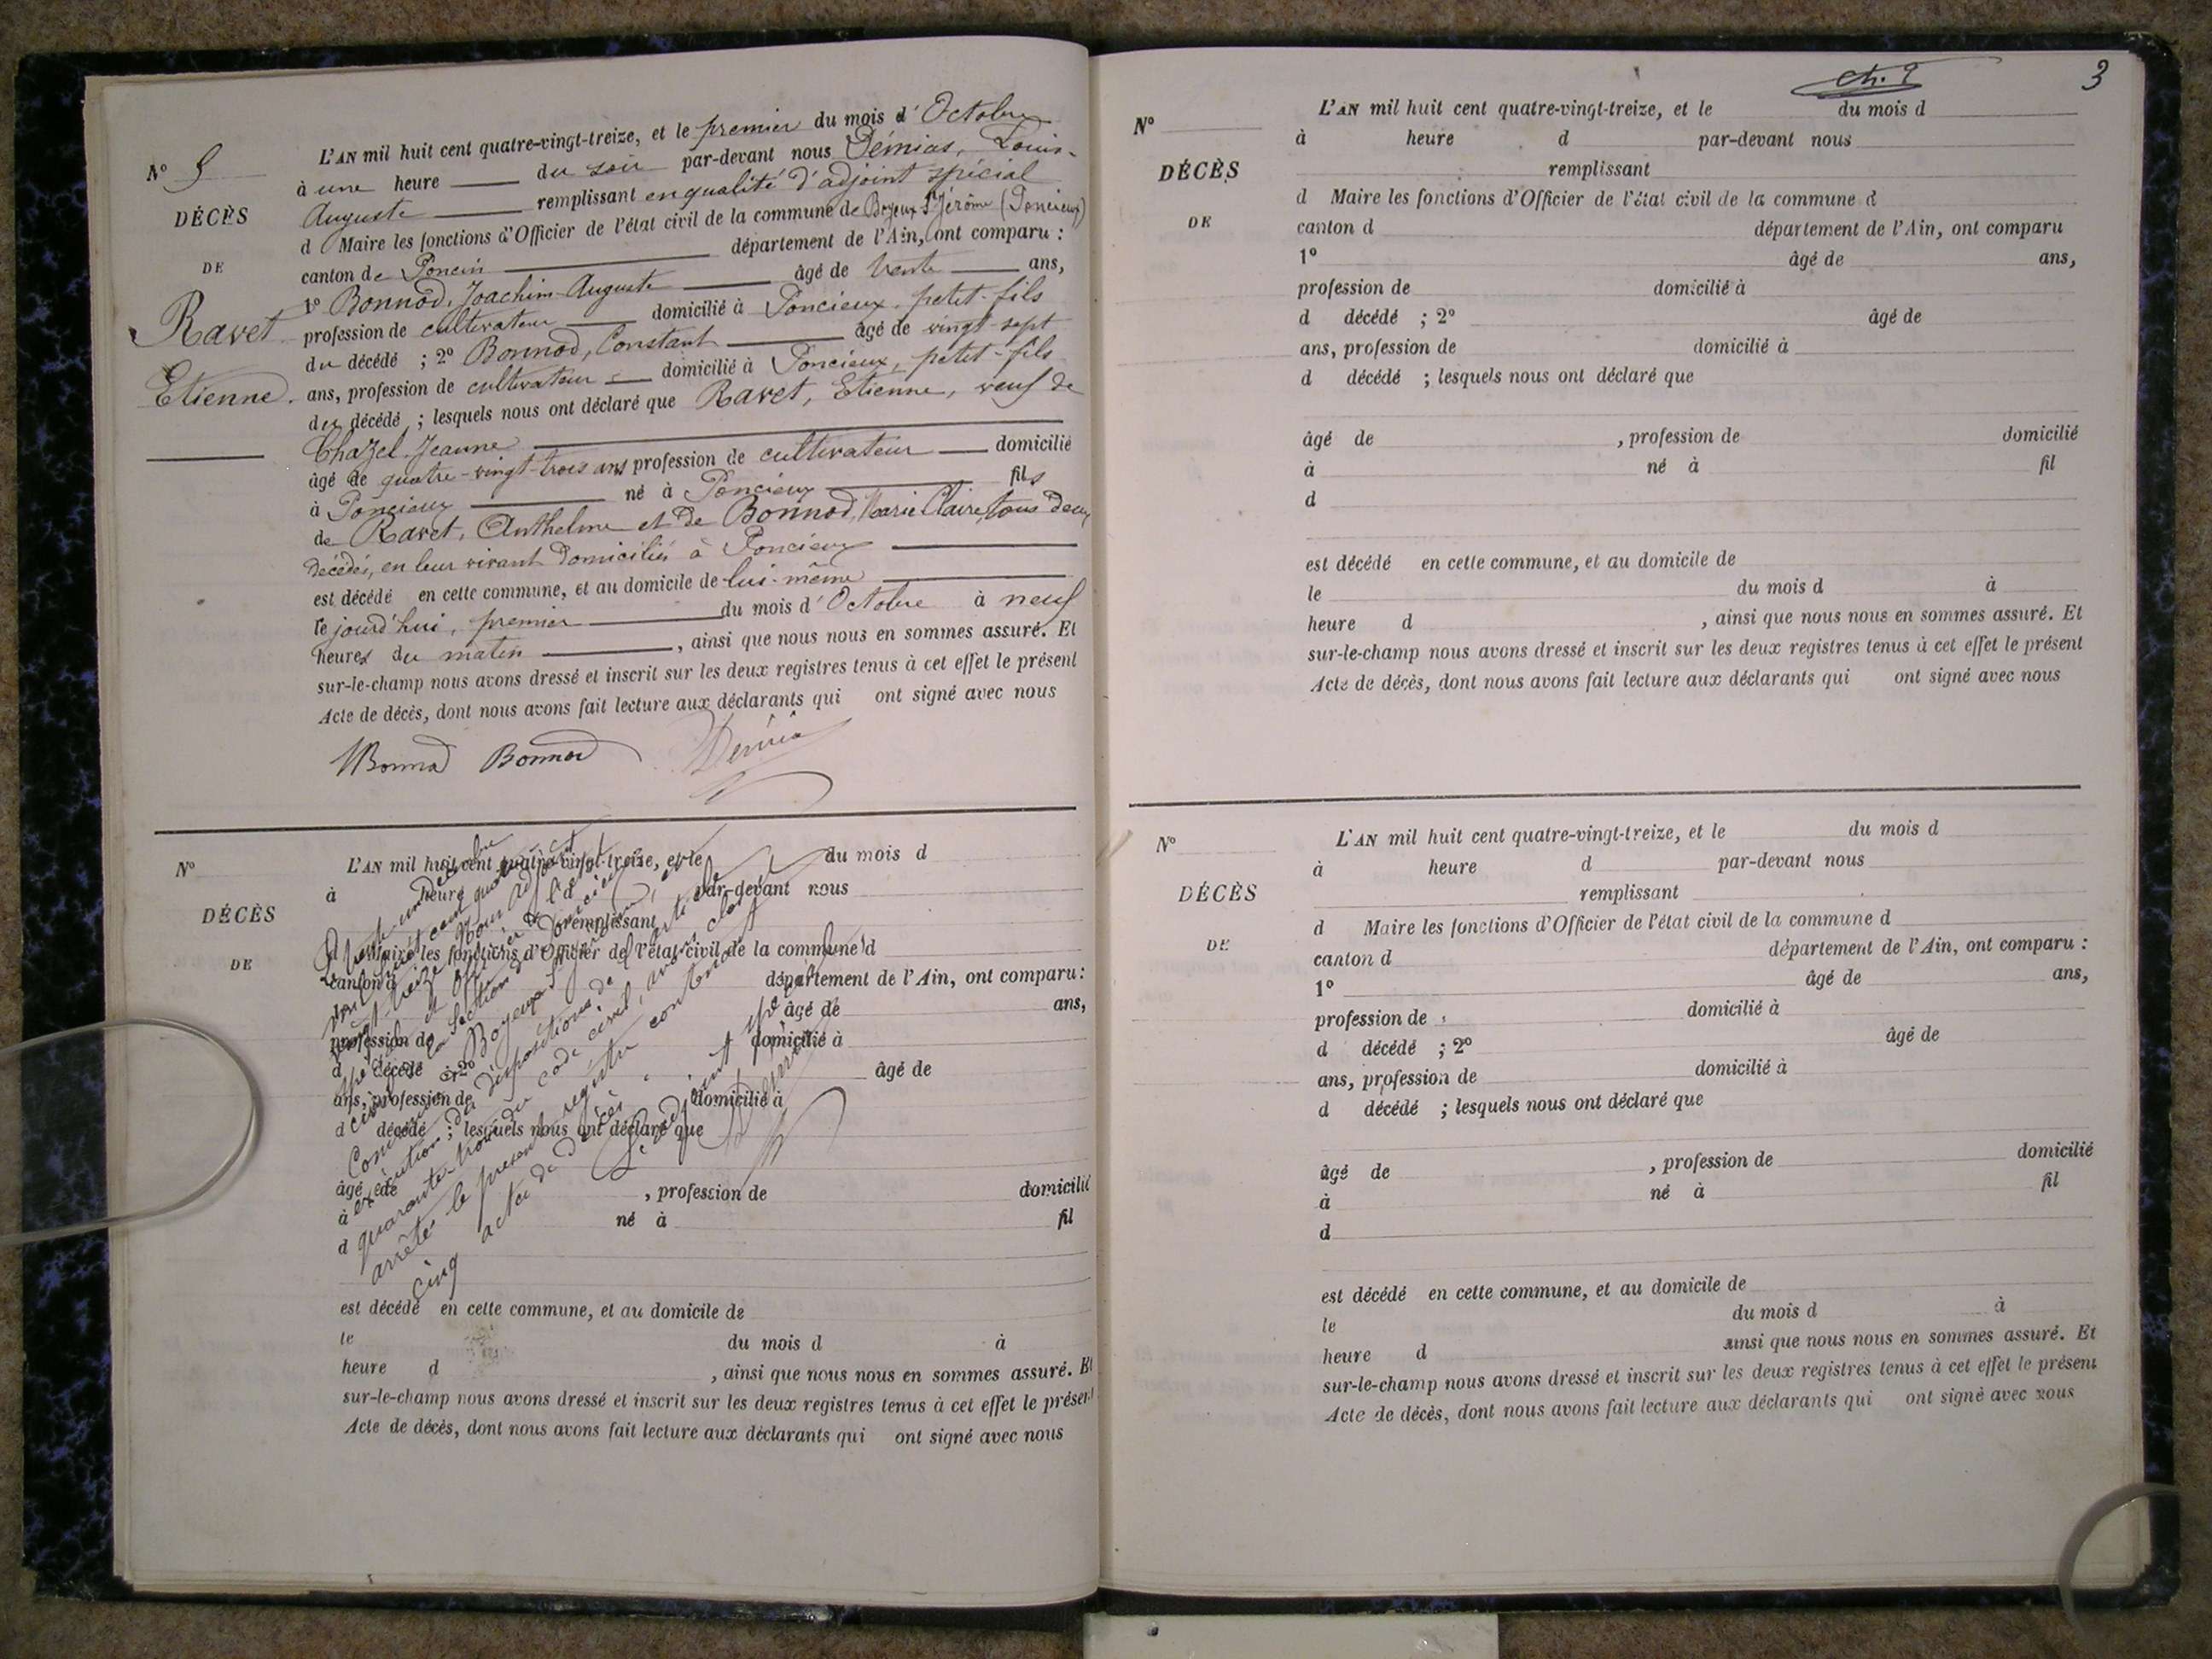 N° 5
DÉCÈS
DE
Ravet
Etienne.
L'AN mil huit cent quatre-vingt-treize, et le premier du mois d'Octobre
à une heure du soir par-devant nous Démias, Louis-
Auguste remplissant en qualité d'adjoint spécial
d Maire les fonctions d'Officier de l'état civil de la commune de Boyeux-St Jérôme (Poncieux)
canton de Poncin département de l'Ain, ont comparu :
1° Bonnod, Joachim-Auguste âgé de trente ans,
profession de cultivateur domicilié à Poncieux, petit-fils
du décédé ; 2° Bonnod, Constant âgé de vingt-sept
ans, profession de cultivateur domicilié à Poncieux, petit-fils
du décédé ; lesquels nous ont déclaré que Ravet, Etienne, veuf de
Chazel Jeanne
âgé de quatre-vingt-trois ans profession de cultivateur domicilié
à Poncieux né à Poncieux fils
de Ravet, Anthelme et de Bonnod, Marie Claire, tous deux
décédés, en leur vivant domiciliés à Poncieux
est décédé en cette commune, et au domicile de lui-même
le jourd'hui, premier du mois d'Octobre à neuf
heures du matin , ainsi que nous nous en sommes assuré. Et
sur-le-champ nous avons dressé et inscrit sur les deux registres tenus à cet effet le présent
Acte de décès, dont nous avons fait lecture aux déclarants qui ont signé avec nous
Bonnod Bonnod Démias
N°
DÉCÈS
DE
L'AN mil huit cent quatre-vingt-treize, et le du mois d
à heure d par-devant nous
remplissant
d Maire les fonctions d'Officier de l'état civil de la commune d
canton d département de l'Ain, ont comparu :
âgé de ans,
profession de domicilié à
d décédé ; 2° âgé de
ans, profession de domicilié à
d décédé ; lesquels nous ont déclaré que
âgé de , profession de domicilié
à né à fil
d
est décédé en cette commune, et au domicile de
le du mois d à
heure d , ainsi que nous nous en sommes assuré. Et
sur-le-champ nous avons dressé et inscrit sur les deux registres tenus à cet effet le présent
Acte de décès, dont nous avons fait lecture aux déclarants qui ont signé avec nous
exécution des dispositions de
quarante-trois du code civil, avons clos et
arrêté le présent registre contenant
cinq actes de décès.
L'adjoint spécial
3
N°
DÉCÈS
DE
L'AN mil huit cent quatre-vingt-treize, et le du mois d
à heure d par-devant nous
remplissant
d Maire les fonctions d'Officier de l'état civil de la commune d
canton d département de l'Ain, ont comparu
1° âgé de ans,
profession de domicilié à
d décédé ; 2° âgé de
ans, profession de domicilié à
d décédé ; lesquels nous ont déclaré que
âgé de , profession de domicilié
à né à fil
d
est décédé en cette commune, et au domicile de
le du mois d à
heure d , ainsi que nous nous en sommes assuré. Et
sur-le-champ nous avons dressé et inscrit sur les deux registres tenus à cet effet le présent
Acte de décès, dont nous avons fait lecture aux déclarants qui ont signé avec nous
N°
DÉCÈS
DE
L'AN mil huit cent quatre-vingt-treize, et le du mois d
à heure d par-devant nous
remplissant
d Maire les fonctions d'Officier de l'état civil de la commune d
canton d département de l'Ain, ont comparu :
1° âgé de ans,
profession de domicilié à
d décédé ; 2° âgé de
ans, profession de domicilié à
d décédé ; lesquels nous ont déclaré que
âgé de , profession de domicilié
à né à fil
d
est décédé en cette commune, et au domicile de
le du mois d à
heure d ainsi que nous nous en sommes assuré. Et
sur-le-champ nous avons dressé et inscrit sur les deux registres tenus à cet effet le présent
Acte de décès, dont nous avons fait lecture aux déclarants qui ont signé avec nous